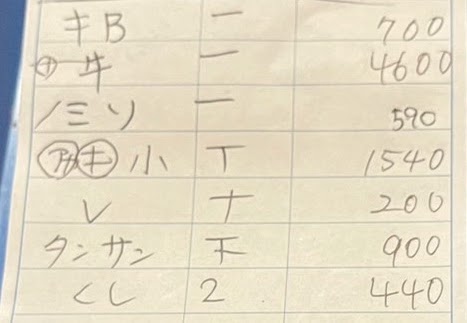 キB 一 700
㊉牛 一 4600
ハミソ 一 590
アサ キ 小 T 1540
レ 𠂇 200
タンサン 下 900
くし 2 440